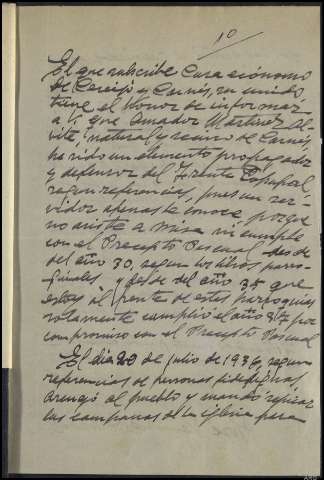 10
El que subscribe Cura ecónomo
de Cereijo y Carnés, su unido
tiene el honor de informar
a V. que Amador Martinez Al-
vite, natural y vecino de Carnés,
ha sido un elemento propagador
y defensor del Frente Popular,
segun referencias, pues un ser-
vidor apenas te conoce, porque
no asiste a misa ni cumple
con el Precepto Pascual desde
del año 30, segun los libros parro-
quiales, y desde del año 35 que
estoy al frente de estas parroquias
solamente cumplió el año 37 por
compromiso con el Precepto Pascual
El dia 20 de julio de 1936, segun
referencias de personas fidedignas,
arengó al pueblo y mando repicar
las campanas de la iglesia para